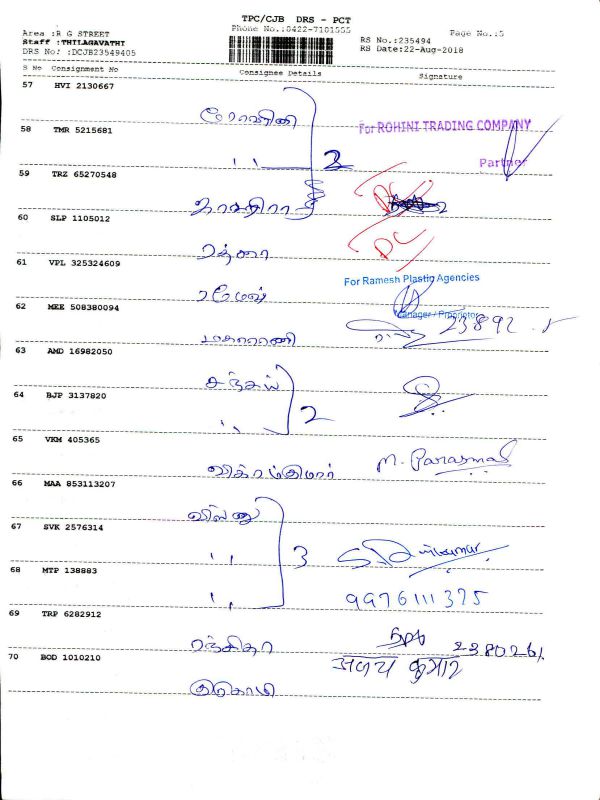 TPC/CJB DRS - PCT
Phone No.:0422-7101555
Area :R G STREET
Staff :THILAGAVATHI
DRS No: :DCJB23549405
RS No.:235494
RS Date:22-Aug-2018
Page No.:5
S No Consignment No Consignee Details Signature
57 HVI 2130667
ரோஹினி
For ROHINI TRADING COMPANY
58 TMR 5215681
,, 2
Partner
59 TRZ 65270548
60 SLP 1105012
61 VPL 325324609
ரமேஷ்
For Ramesh Plastic Agencies
Manager / Proprietor
62 MEE 508380094
மகாராணி
23892
63 AMD 16982050
சஞ்சய்
64 BJP 3137820
,, 2
65 VKM 405365
விக்ரம்குமார்
M. Parasmal
66 MAA 853113207
விஷ்ணு
67 SVK 2576314
,, 3
68 MTP 138883
,,
9976111375
69 TRP 6282912
ரஞ்சிதா
238026
70 BOD 1010210
अजय कुमार